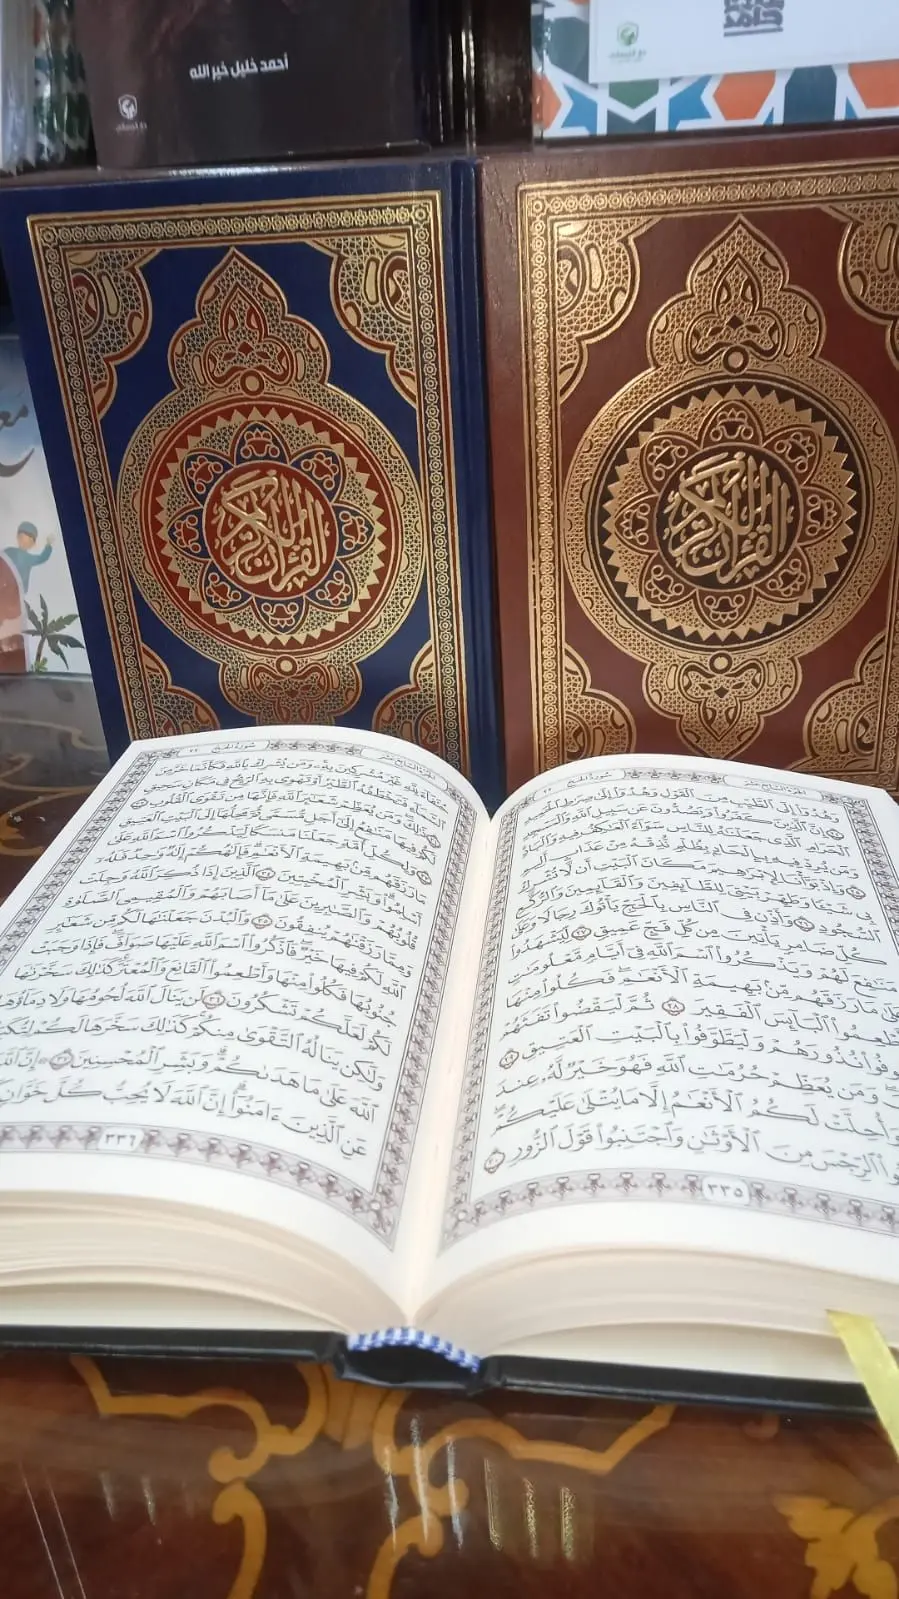 أحمد خليل خير الله
حامد
القرآن الكريم
القرآن الكريم
الجزء السابع عشر
سورة الحج ٢٢
وَهُدُوٓا۟ إِلَى ٱلطَّيِّبِ مِنَ ٱلْقَوْلِ وَهُدُوٓا۟ إِلَىٰ صِرَٰطِ ٱلْحَمِيدِ
﴿٢٤﴾ إِنَّ ٱلَّذِينَ كَفَرُوا۟ وَيَصُدُّونَ عَن سَبِيلِ ٱللَّهِ وَٱلْمَسْجِدِ
ٱلْحَرَامِ ٱلَّذِى جَعَلْنَٰهُ لِلنَّاسِ سَوَآءً ٱلْعَٰكِفُ فِيهِ وَٱلْبَادِ
وَمَن يُرِدْ فِيهِ بِإِلْحَادٍۭ بِظُلْمٍ نُّذِقْهُ مِنْ عَذَابٍ أَلِيمٍ
﴿٢٥﴾ وَإِذْ بَوَّأْنَا لِإِبْرَٰهِيمَ مَكَانَ ٱلْبَيْتِ أَن لَّا تُشْرِكْ
بِى شَيْـًٔا وَطَهِّرْ بَيْتِىَ لِلطَّآئِفِينَ وَٱلْقَآئِمِينَ وَٱلرُّكَّعِ
ٱلسُّجُودِ ﴿٢٦﴾ وَأَذِّن فِى ٱلنَّاسِ بِٱلْحَجِّ يَأْتُوكَ رِجَالًا وَعَلَىٰ
كُلِّ ضَامِرٍ يَأْتِينَ مِن كُلِّ فَجٍّ عَمِيقٍ ﴿٢٧﴾ لِّيَشْهَدُوا۟
مَنَٰفِعَ لَهُمْ وَيَذْكُرُوا۟ ٱسْمَ ٱللَّهِ فِىٓ أَيَّامٍ مَّعْلُومَٰتٍ
عَلَىٰ مَا رَزَقَهُم مِّنۢ بَهِيمَةِ ٱلْأَنْعَٰمِ فَكُلُوا۟ مِنْهَا
وَأَطْعِمُوا۟ ٱلْبَآئِسَ ٱلْفَقِيرَ ﴿٢٨﴾ ثُمَّ لْيَقْضُوا۟ تَفَثَهُمْ
وَلْيُوفُوا۟ نُذُورَهُمْ وَلْيَطَّوَّفُوا۟ بِٱلْبَيْتِ ٱلْعَتِيقِ ﴿٢٩﴾
وَمَن يُعَظِّمْ حُرُمَٰتِ ٱللَّهِ فَهُوَ خَيْرٌ لَّهُۥ عِندَ
وَأُحِلَّتْ لَكُمُ ٱلْأَنْعَٰمُ إِلَّا مَا يُتْلَىٰ عَلَيْكُمْ
ٱلرِّجْسَ مِنَ ٱلْأَوْثَٰنِ وَٱجْتَنِبُوا۟ قَوْلَ ٱلزُّورِ ﴿٣٠﴾
٣٣٥
الجزء السابع عشر
سورة الحج ٢٢
حُنَفَآءَ لِلَّهِ غَيْرَ مُشْرِكِينَ بِهِۦ وَمَن يُشْرِكْ بِٱللَّهِ فَكَأَنَّمَا خَرَّ مِنَ
ٱلسَّمَآءِ فَتَخْطَفُهُ ٱلطَّيْرُ أَوْ تَهْوِى بِهِ ٱلرِّيحُ فِى مَكَانٍ سَحِيقٍ
﴿٣١﴾ ذَٰلِكَ وَمَن يُعَظِّمْ شَعَٰٓئِرَ ٱللَّهِ فَإِنَّهَا مِن تَقْوَى ٱلْقُلُوبِ ﴿٣٢﴾
لَكُمْ فِيهَا مَنَٰفِعُ إِلَىٰٓ أَجَلٍ مُّسَمًّى ثُمَّ مَحِلُّهَآ إِلَى ٱلْبَيْتِ ٱلْعَتِيقِ
﴿٣٣﴾ وَلِكُلِّ أُمَّةٍ جَعَلْنَا مَنسَكًا لِّيَذْكُرُوا۟ ٱسْمَ ٱللَّهِ عَلَىٰ
مَا رَزَقَهُم مِّنۢ بَهِيمَةِ ٱلْأَنْعَٰمِ فَإِلَٰهُكُمْ إِلَٰهٌ وَٰحِدٌ فَلَهُۥٓ
أَسْلِمُوا۟ وَبَشِّرِ ٱلْمُخْبِتِينَ ﴿٣٤﴾ ٱلَّذِينَ إِذَا ذُكِرَ ٱللَّهُ وَجِلَتْ
قُلُوبُهُمْ وَٱلصَّٰبِرِينَ عَلَىٰ مَآ أَصَابَهُمْ وَٱلْمُقِيمِى ٱلصَّلَوٰةِ
وَمِمَّا رَزَقْنَٰهُمْ يُنفِقُونَ ﴿٣٥﴾ وَٱلْبُدْنَ جَعَلْنَٰهَا لَكُم مِّن شَعَٰٓئِرِ
ٱللَّهِ لَكُمْ فِيهَا خَيْرٌ فَٱذْكُرُوا۟ ٱسْمَ ٱللَّهِ عَلَيْهَا صَوَآفَّ فَإِذَا وَجَبَتْ
جُنُوبُهَا فَكُلُوا۟ مِنْهَا وَأَطْعِمُوا۟ ٱلْقَانِعَ وَٱلْمُعْتَرَّ كَذَٰلِكَ سَخَّرْنَٰهَا
لَكُمْ لَعَلَّكُمْ تَشْكُرُونَ ﴿٣٦﴾ لَن يَنَالَ ٱللَّهَ لُحُومُهَا وَلَا دِمَآؤُهَا
وَلَٰكِن يَنَالُهُ ٱلتَّقْوَىٰ مِنكُمْ كَذَٰلِكَ سَخَّرَهَا لَكُمْ لِتُكَبِّرُوا۟
ٱللَّهَ عَلَىٰ مَا هَدَىٰكُمْ وَبَشِّرِ ٱلْمُحْسِنِينَ ﴿٣٧﴾ إِنَّ ٱللَّهَ
عَنِ ٱلَّذِينَ ءَامَنُوٓا۟ إِنَّ ٱللَّهَ لَا يُحِبُّ كُلَّ خَوَّانٍ
٣٣٦